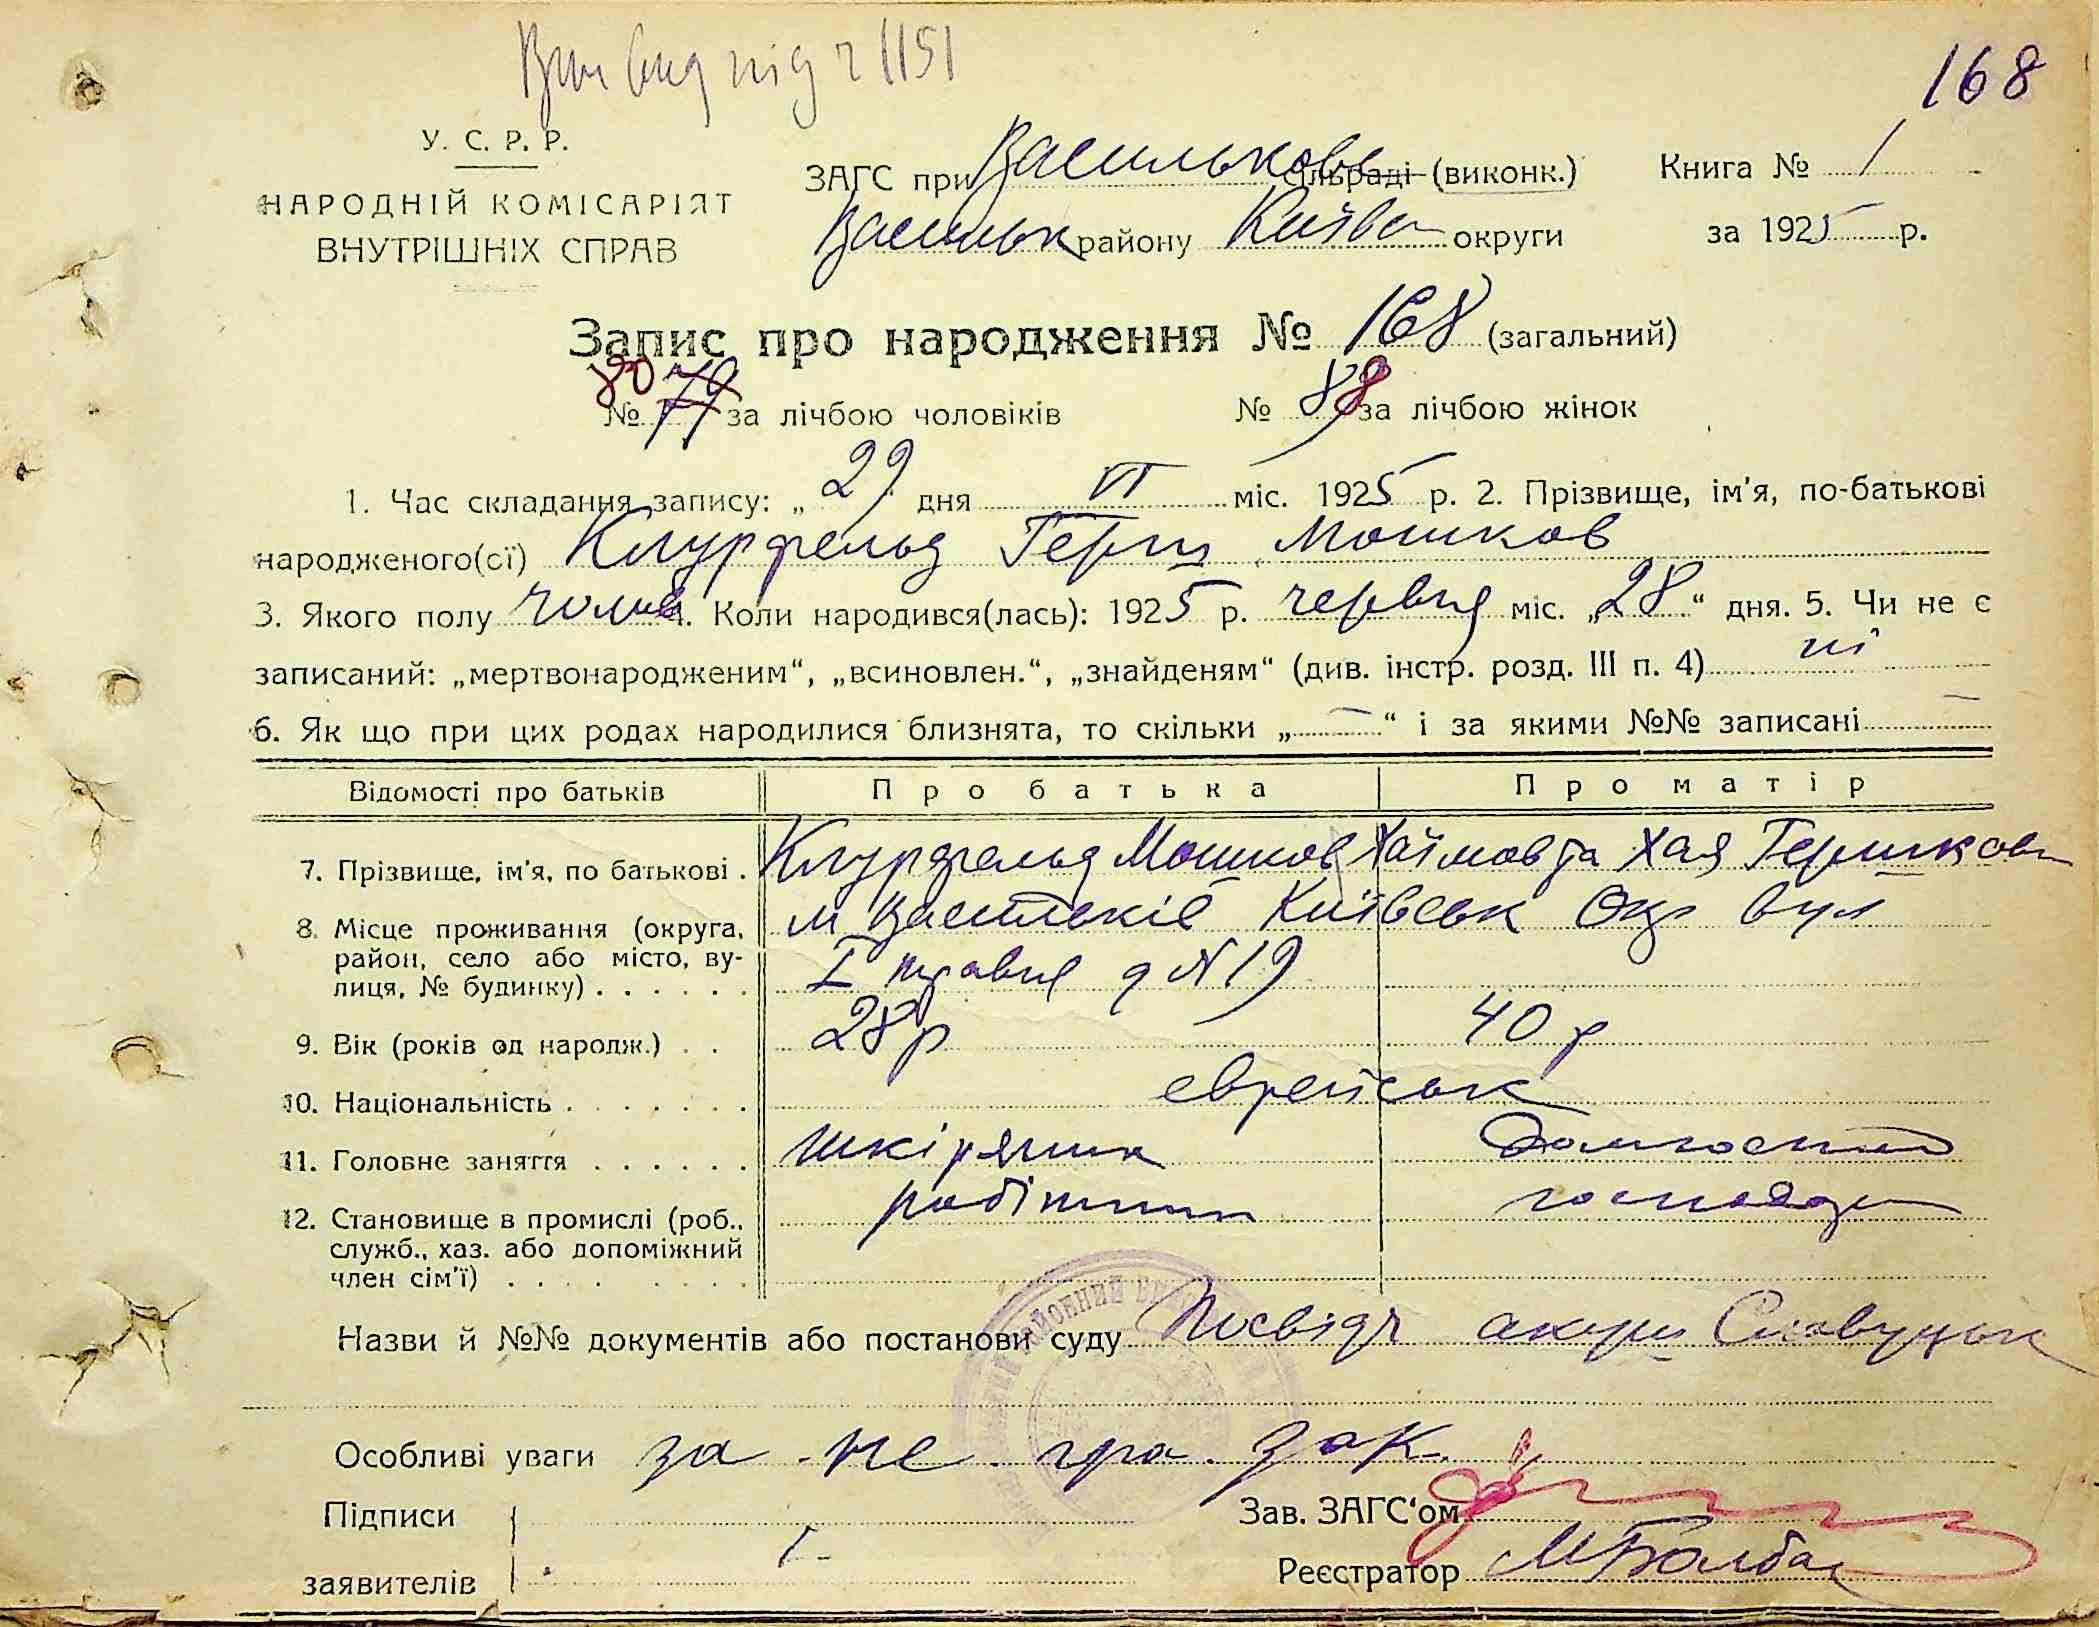 168
У. С. Р. Р.
НАРОДНІЙ КОМІСАРІЯТ
ВНУТРІШНІХ СПРАВ
ЗАГС при Васильков сільраді (виконк.) Книга № 1
Васильк району Київс округи за 1925 р.
Запис про народження № 168 (загальний)
80
№ 79 за лічбою чоловіків № 88 за лічбою жінок
1. Час складання запису: „29“ дня VI міс. 1925 р. 2. Прізвище, ім'я, по-батькові
народженого(сї) Клурфельд Герш Мошков
3. Якого полу чолов 4. Коли народився(лась): 1925 р. червня міс. „28“ дня. 5. Чи не є
записаний: „мертвонародженим“, „всиновлен.“, „знайденям“ (див. інстр. розд. III п. 4) ні
6. Як що при цих родах народилися близнята, то скільки „ — “ і за якими №№ записані —
Відомості про батьків Про батька Про матір
7. Прізвище, ім'я, по батькові . Клурфельд Мошков Хаїмов та Хая Гершков
8. Місце проживання (округа, район, село або місто, вулиця, № будинку) . . . . . . м Васильків Київськ Окр вул
І травня д № 19
9. Вік (років од народж.) . . 28 р 40 р
10. Національність . . . . . . . еврейськ
11. Головне заняття . . . . . . шкіряник
12. Становище в промислі (роб., служб., хаз. або допоміжний член сім'ї) . . . . робітник
Назви й №№ документів або постанови суду Посвідч акуш Славуцьк
Особливі уваги за не гра. зак.
Підписи
заявителів
Зав. ЗАГС'ом
Реєстратор